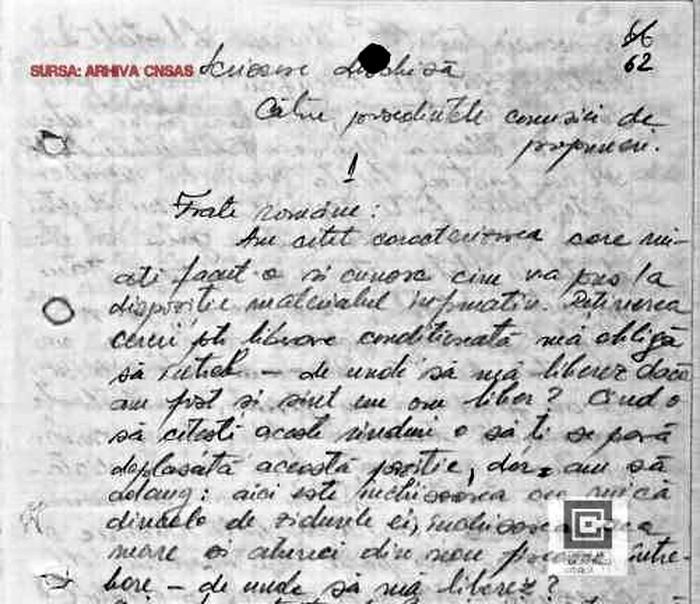 66
62
SURSA: ARHIVA CNSAS Scrisoare deschisă
Către președintele comisiei de
propuneri.
1
Frate române:
Am citit caracterizarea care mi-
ați făcut-o și cunosc cine v-a pus la
dispoziție materialul informativ. Retinerea
cererii ptr. liberare condiționată mă obligă
să întreb – de unde să mă liberez dacă
am fost și sînt un om liber? Cînd o
să citești aceste rînduri o să ți se pară
deplasată această poziție, dar, am să
adaug: aici este închisoarea cea mică
dincolo de zidurile ei, închisoarea cea
mare și atunci din nou între-
bare – de unde să mă liberez?